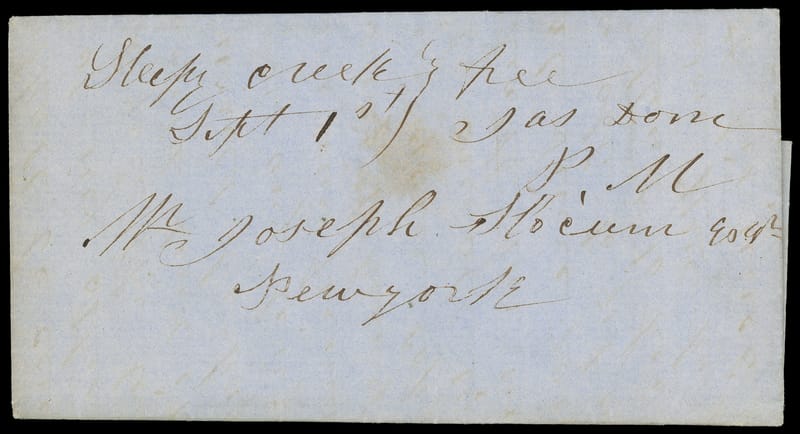 Sleepy creek } free
Sept 1st } Jas Dorn
P M
Mr Joseph Slocum Esqr
Newyork